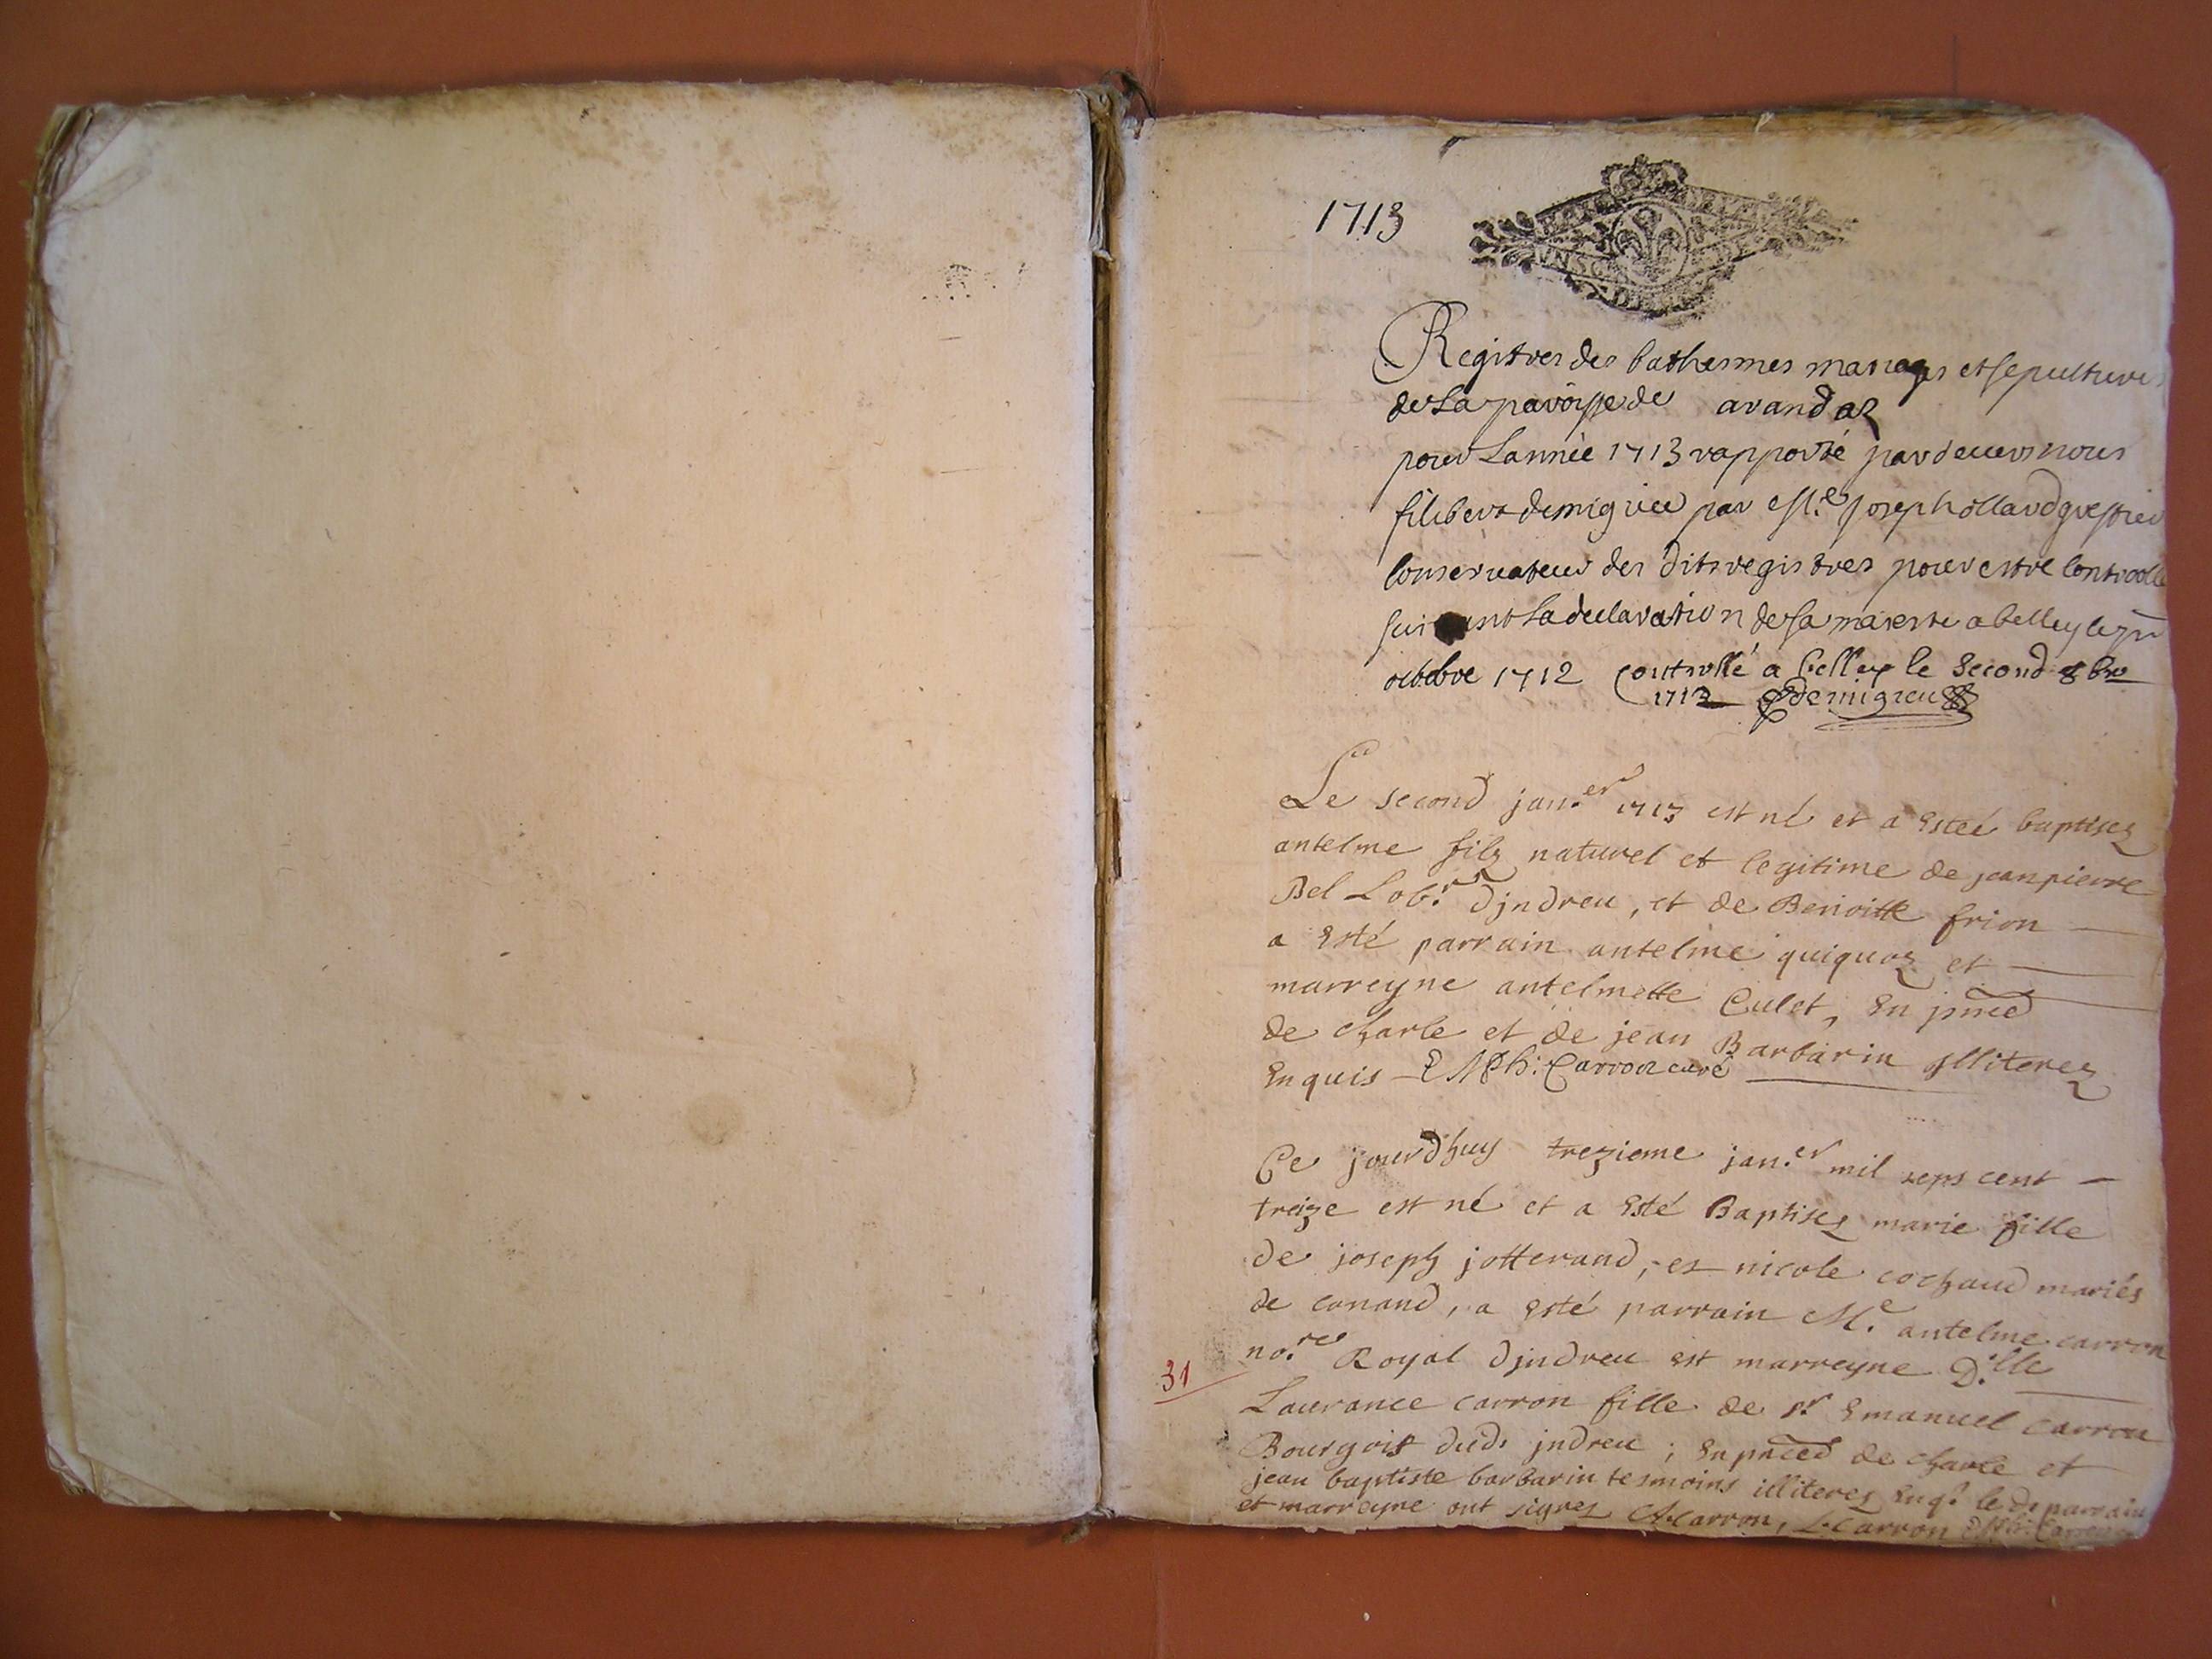 1713
Registres des bathesmes mariages et sepultures
de La paroisse de arandas
pour Lannée 1713 rapporté pardeuers nous
filibert demigieu par Me Joseph ollard greffier
Conseruateur des dits registres pour estre Controollé
suiuant La declaration de sa maieste a belley le
octobre 1712 Controllé a belley le second 8bre
1712 demigieu
Le second jan.er 1713 est né et a estéé baptisez
antelme filz naturel et legitime de jean pierre
Bel Lob.r djndreu, et de Benoitte frion
a esté parrain antelme quiquoz et
marreyne antelmette Culet, en pnce
de charle et de jean Barbarin jlliterez
enquis E Ph: Carron curé
Ce jourdhuy trezieme jan.er mil sept cent
treize est né et a esté Baptisez marie fille
de joseph jotterand, et nicole cochaud mariés
de conand, a esté parrain M.e antelme carron
no.re Royal djndreu est marreyne D.lle
Laurance carron fille de s.r Emanuel carron
Bourgois dud. jndreu ; en pnce de charle et
jean baptiste barbarin tesmoins illiterez enq.s le d. parrain
et marreyne ont signez A Carron, L. Carron
31